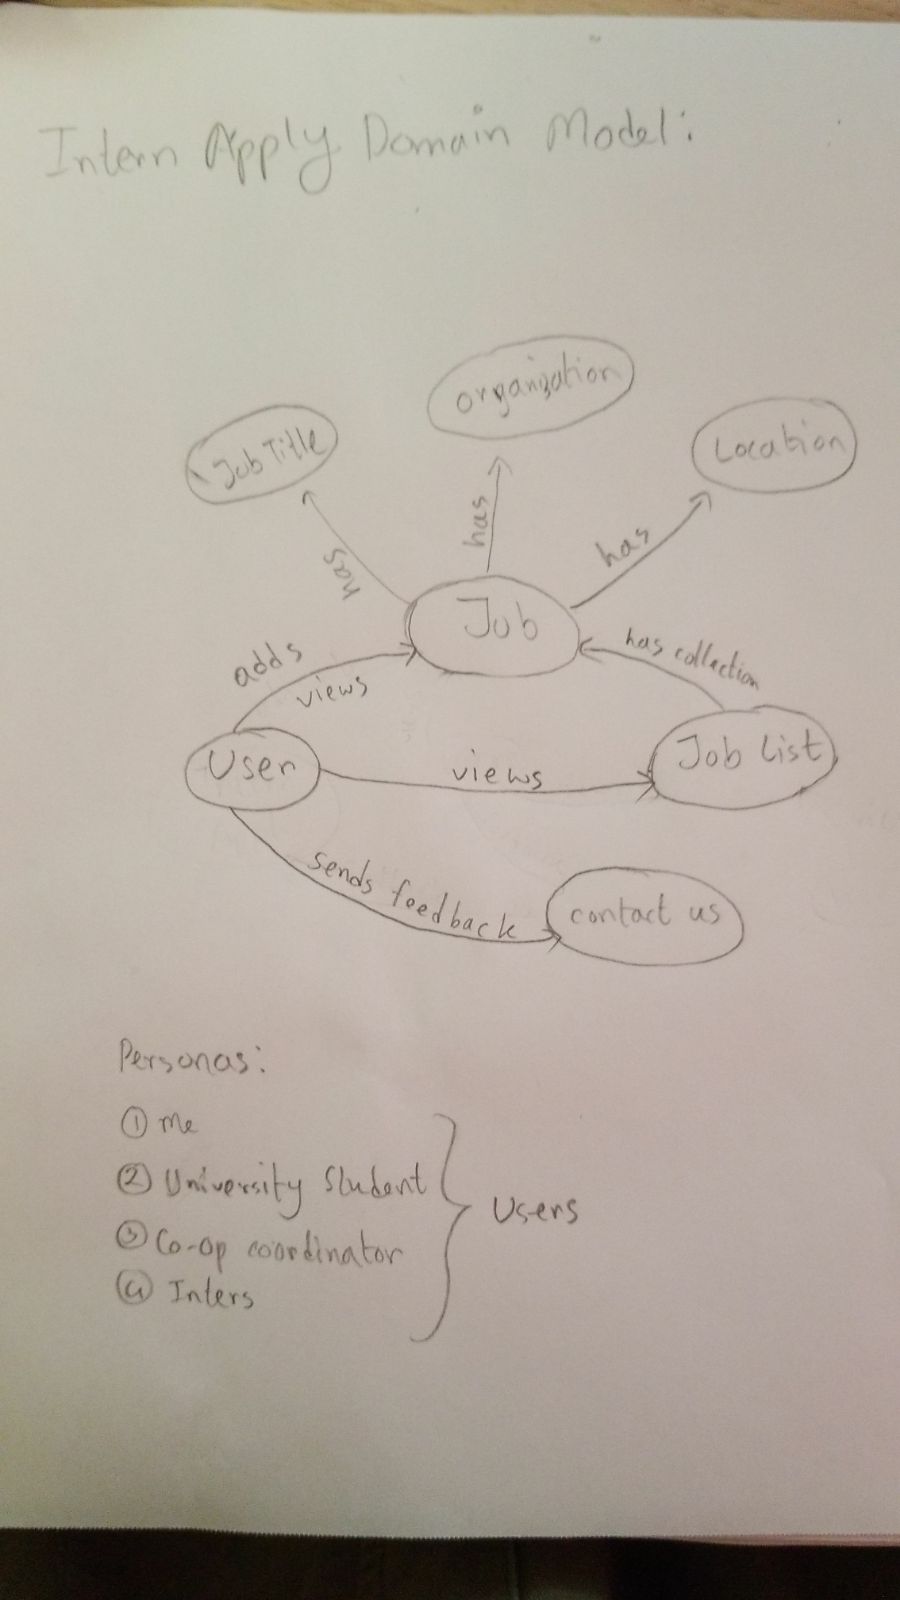 Intern Apply Domain Model:
organization
Job Title
Location
has
has
has
Job
adds
views
has collection
User
views
Job List
sends feedback
contact us
Personas:
① me
② University Student
③ Co-op coordinator
④ Inters
Users